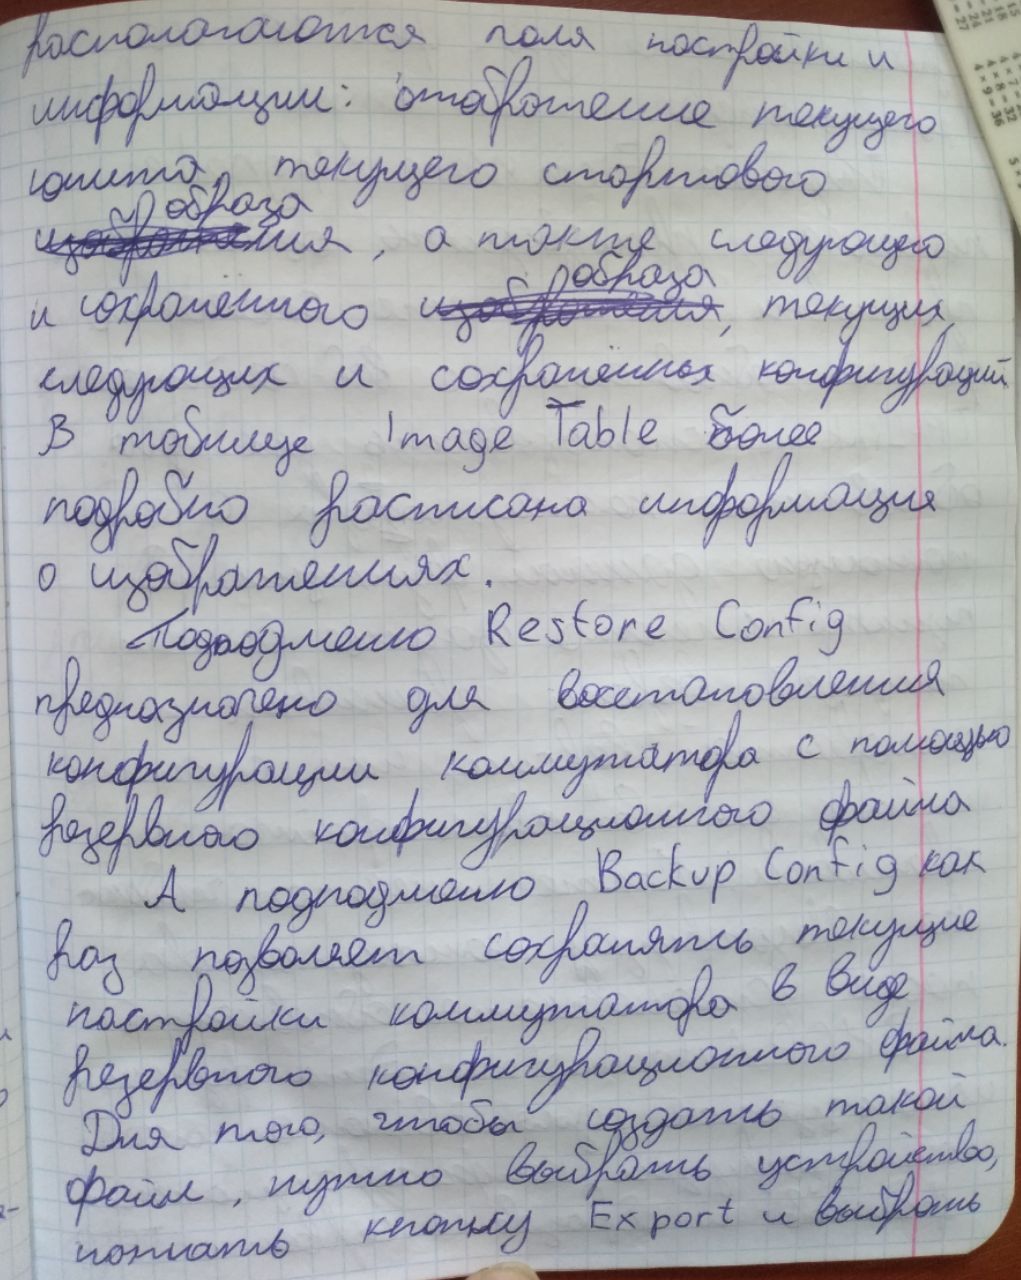 располагаются поля настройки и
информации: отображение текущего
юнита, текущего стартового
образа
изображения, а также следующего
образа
и сохранённого изображения, текущих,
следующих и сохранённых конфигураций.
В таблице Image Table более
подробно расписана информация
о изображениях.
Подподменю Restore Config
предназначено для восстановления
конфигурации коммутатора с помощью
резервного конфигурационного файла
А подподменю Backup Config как
раз позволяет сохранять текущие
настройки коммутатора в виде
резервного конфигурационного файла.
Для того, чтобы создать такой
файл, нужно выбрать устройство,
нажать кнопку Export и выбрать